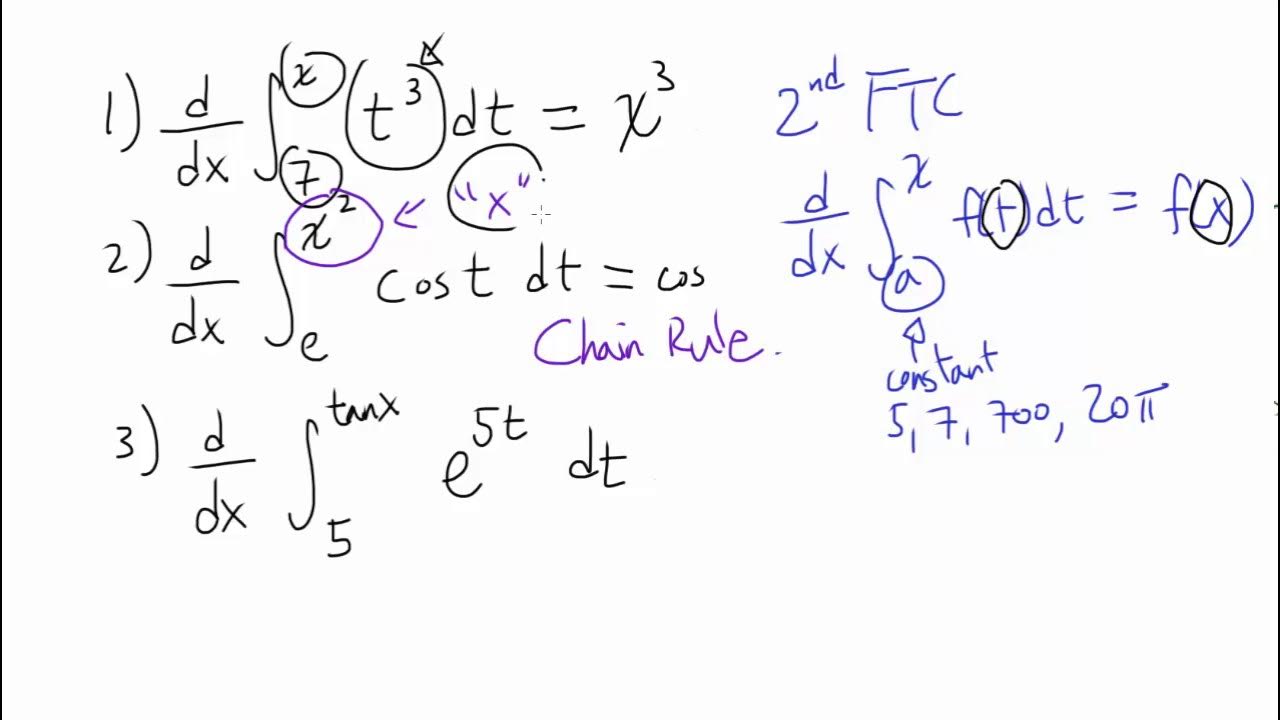 1) d/dx ∫₇ˣ (t³) dt = x³
2) d/dx ∫ₑ^(x²) cos t dt = cos
← "x"
Chain Rule.
3) d/dx ∫₅^(tanx) e^(5t) dt
2nd FTC
d/dx ∫ₐˣ f(t)dt = f(x)
constant
5, 7, 700, 20π